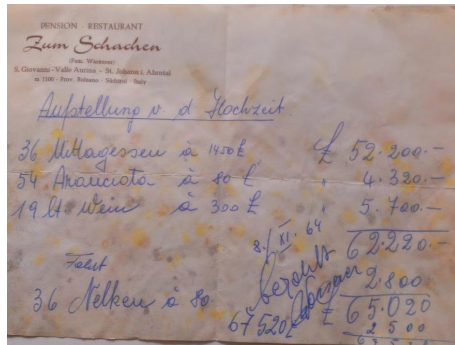 PENSION - RESTAURANT
Zum Schachen
S. Giovanni - Valle Aurina - St. Johann i. Ahrntal
m 1100 - Prov. Bolzano - Südtirol Italy
Aufstellung v d Hochzeit
36 Mittagessen à 1450 £ £ 52.200.—
54 Aranciata à 80 £ " 4.320.—
19 lt. Wein à 300 £ " 5.700.—
8./XI. 64 62.220.—
36 Nelken à 80. bezahlt 2.800
67520 £ £ 65.020
2500